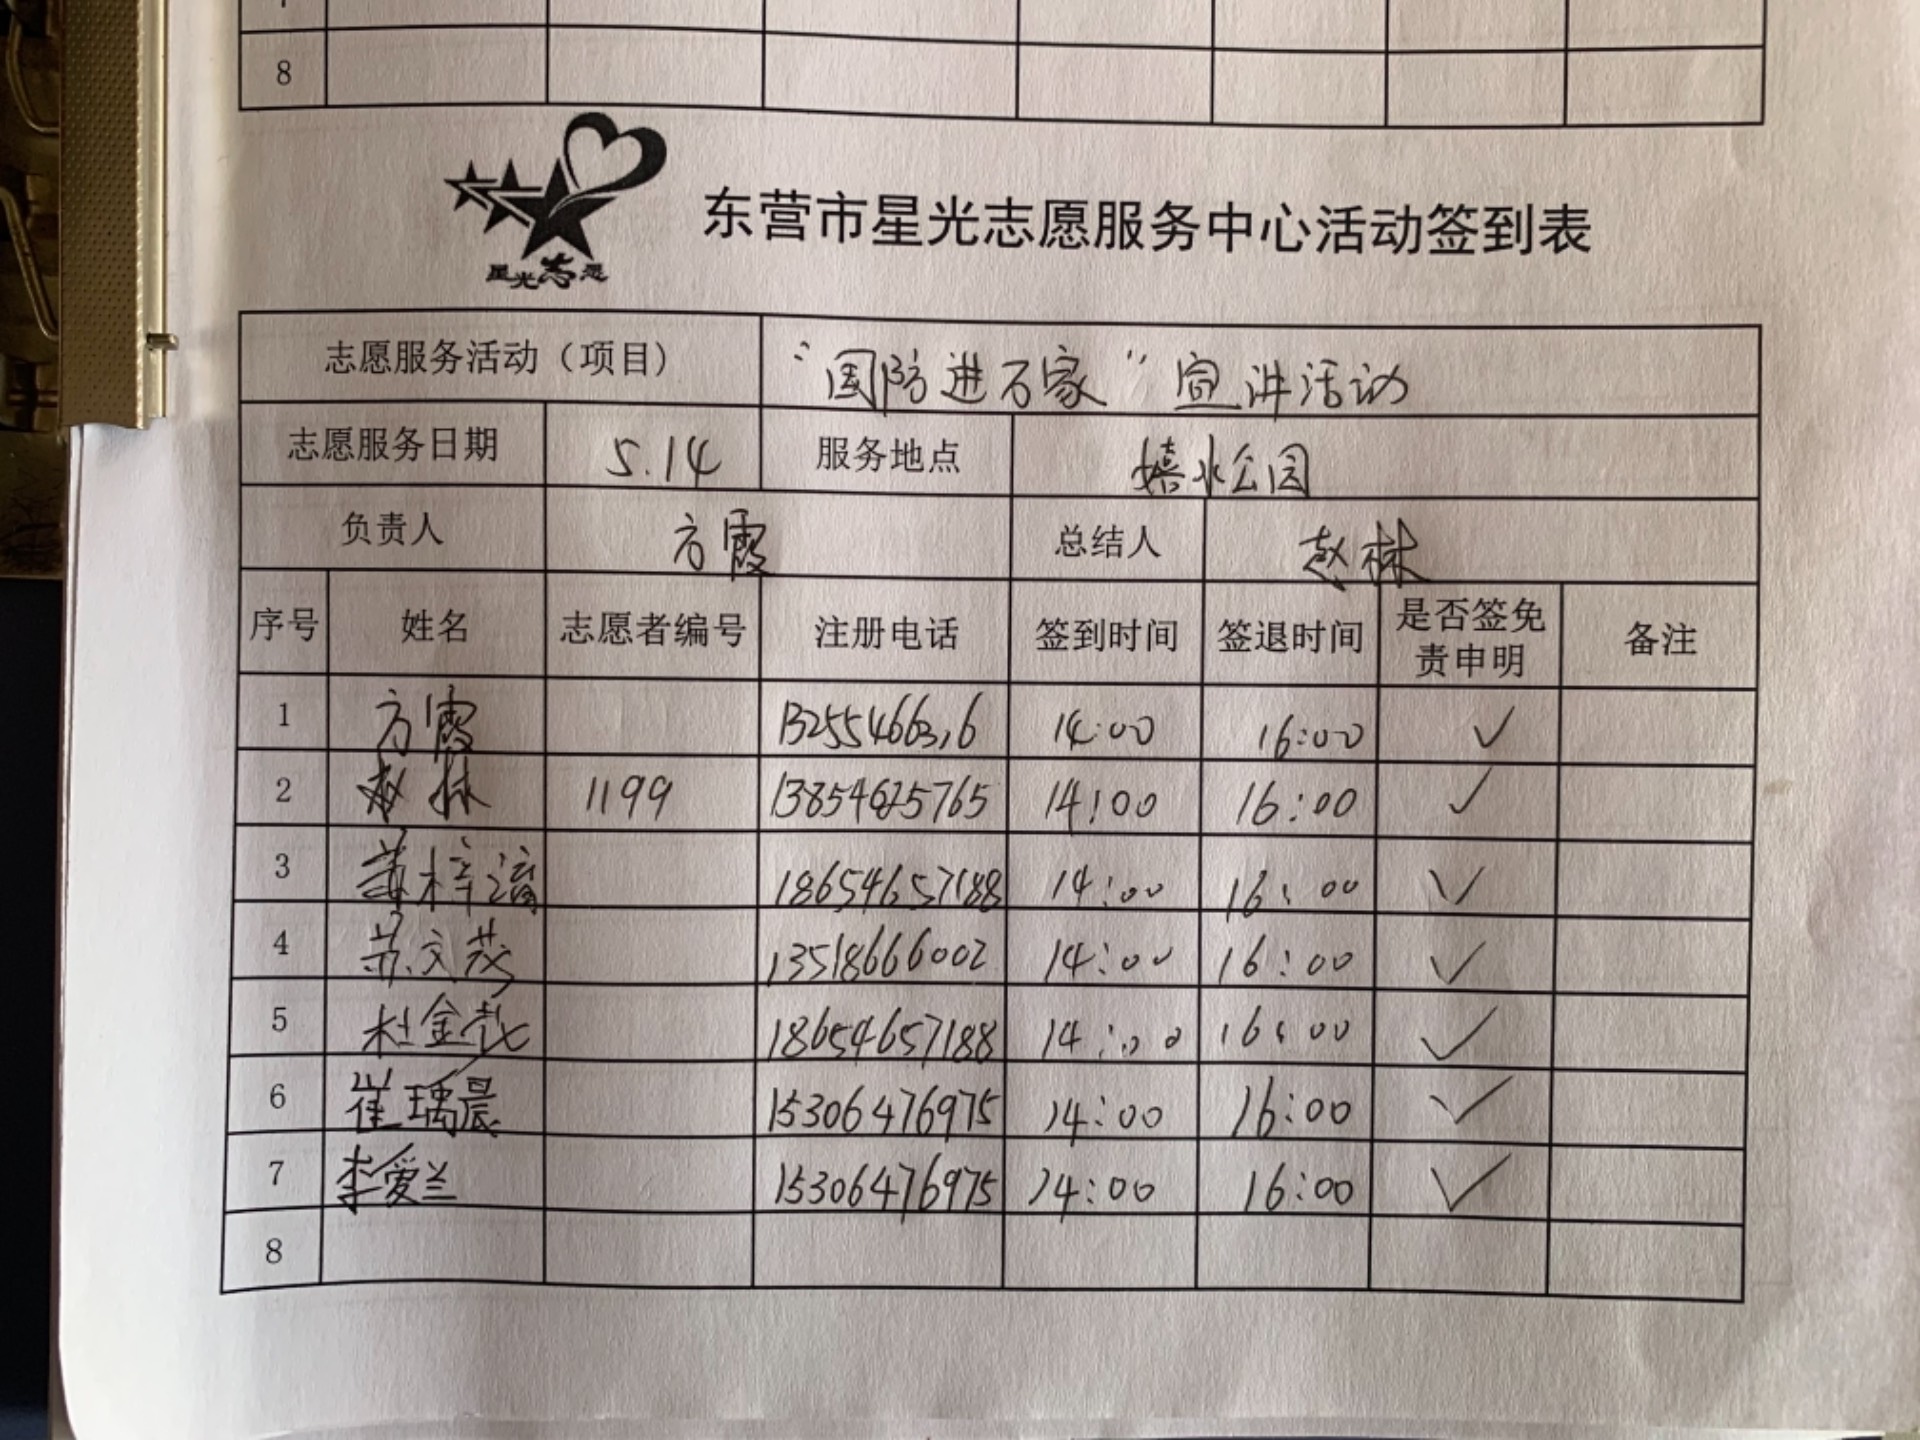 8
星光志愿
东营市星光志愿服务中心活动签到表
志愿服务活动（项目） “国防进万家”宣讲活动
志愿服务日期 5.14 服务地点 嬉水公园
负责人 方霞 总结人 赵林
序号 姓名 志愿者编号 注册电话 签到时间 签退时间 是否签免责申明 备注
1 方霞 14:00 16:00 ✓
2 赵林 1199 13854625765 14:00 16:00 ✓
3 苏梓 18654657188 14:00 16:00 ✓
4 苏文茂 13518666002 14:00 16:00 ✓
5 杜金 18654657188 14:00 16:00 ✓
6 崔瑀晨 15306476975 14:00 16:00 ✓
7 李爱兰 15306476975 14:00 16:00 ✓
8